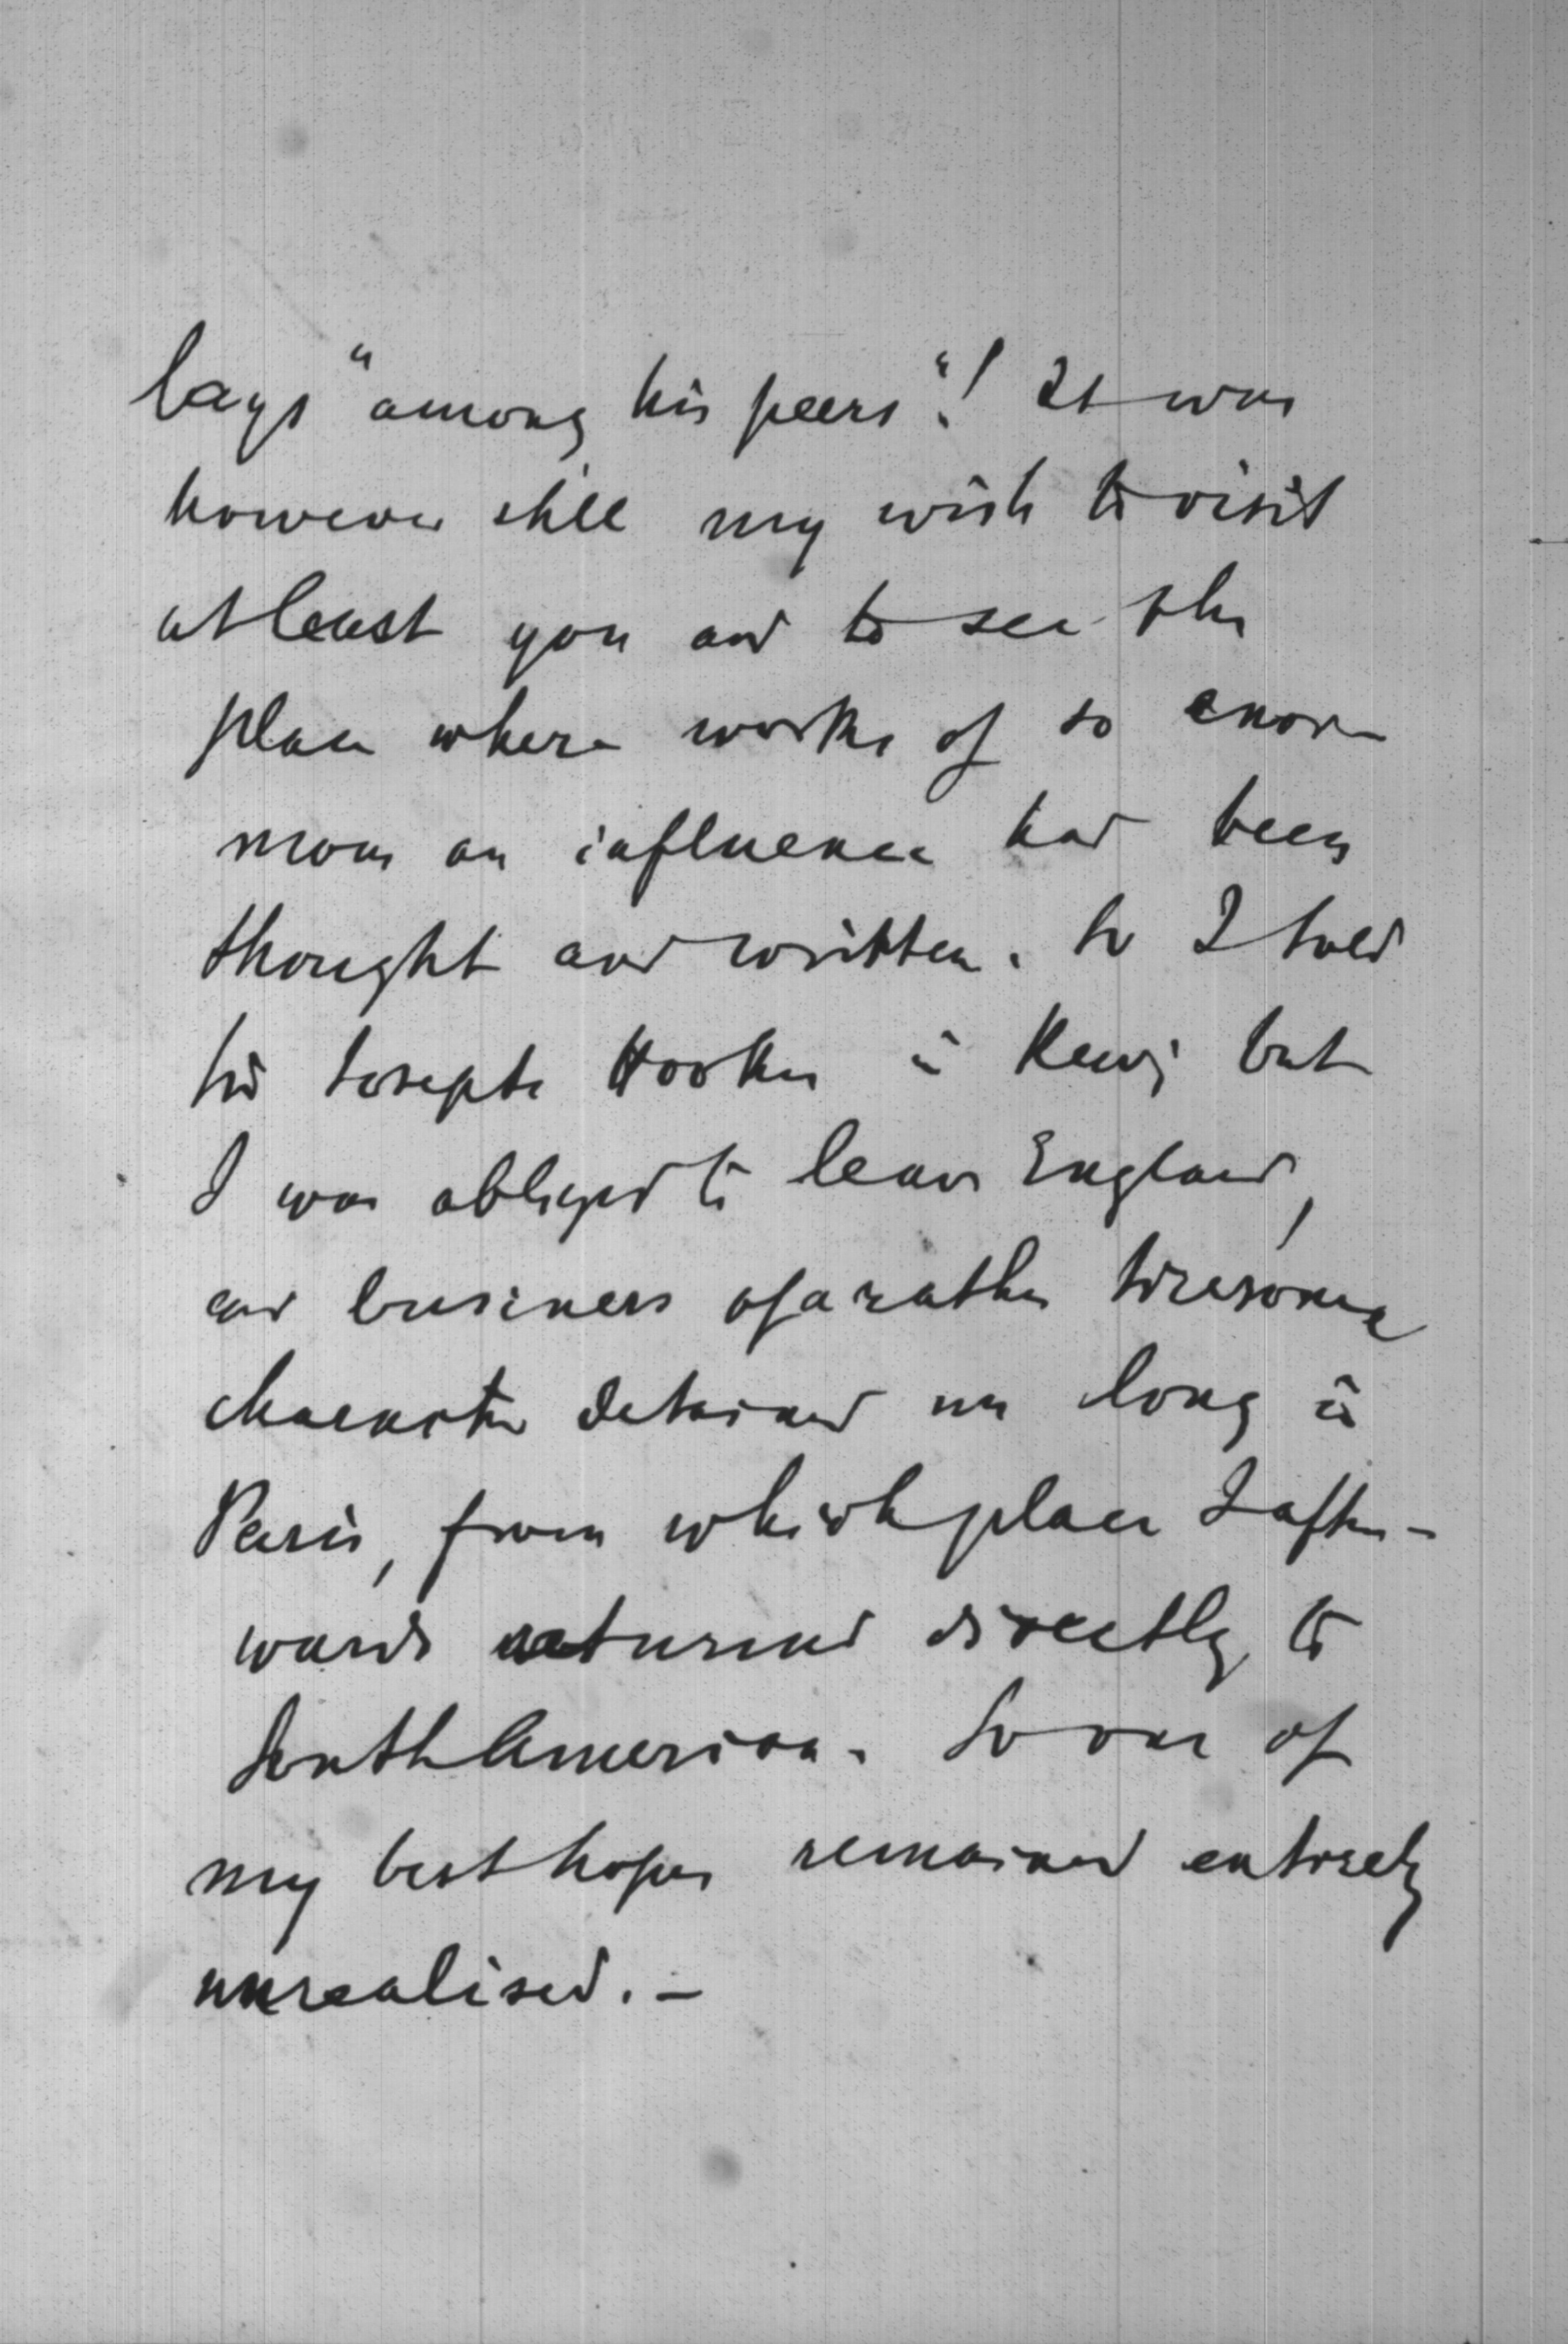 lays "among his peers"! It was
however still my wish to visit
at least you and to see the
place where works of so enor-
mous an influence had been
thought and written. So I told
Sir Joseph Hooker in Kew; but
I was obliged to leave England,
and business of a rather tiresome
character detained me long in
Paris, from which place I after-
wards returned directly to
South America. So one of
my best hopes remained entirely
unrealised. –